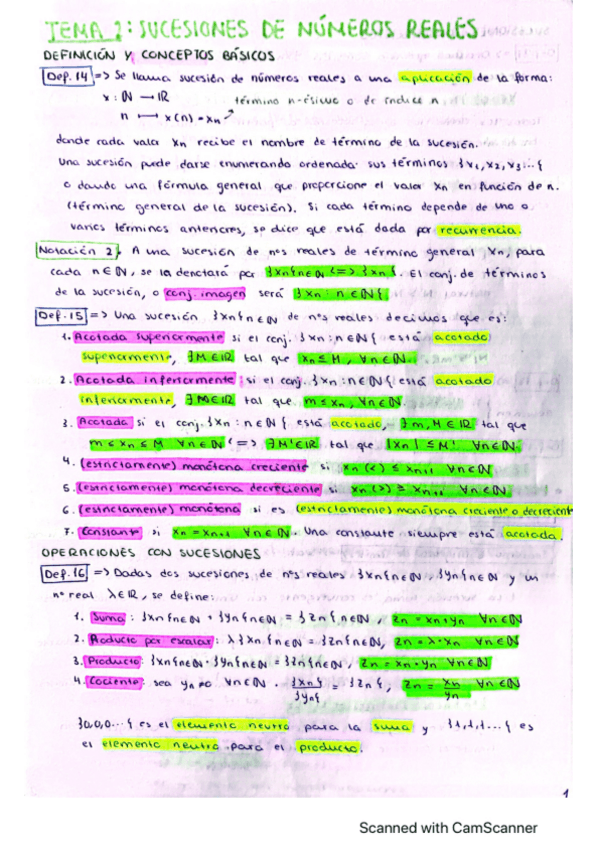 TEMA 2: SUCESIONES DE NÚMEROS REALES
DEFINICIÓN Y CONCEPTOS BÁSICOS
Def. 14 => Se llama sucesión de números reales a una aplicación de la forma:
x : ℕ → ℝ término n-ésimo o de índice n
n ↦ x(n) = xn
donde cada valor xn recibe el nombre de término de la sucesión.
Una sucesión puede darse enumerando ordenada sus términos {x1, x2, x3...}
o dando una fórmula general que proporcione el valor xn en función de n.
(término general de la sucesión). Si cada término depende de uno o
varios términos anteriores, se dice que está dada por recurrencia.
Notación 2. A una sucesión de nos reales de término general xn, para
cada n∈ℕ, se la denotará por {xn}n∈ℕ <=> {xn}. El conj. de términos
de la sucesión, o conj. imagen será {xn : n∈ℕ}.
Def. 15 => Una sucesión {xn}n∈ℕ de nos reales decimos que es:
1. Acotada superiormente si el conj. {xn : n∈ℕ} está acotado
superiormente, ∃M∈ℝ tal que xn ≤ M, ∀n∈ℕ.
2. Acotada inferiormente si el conj. {xn : n∈ℕ} está acotado
inferiormente, ∃m∈ℝ tal que m ≤ xn, ∀n∈ℕ.
3. Acotada si el conj. {xn : n∈ℕ} está acotado, ∃m, M∈ℝ tal que
m ≤ xn ≤ M ∀n∈ℕ <=> ∃M'∈ℝ tal que |xn| ≤ M' ∀n∈ℕ
4. (estrictamente) monótona creciente si xn (<) ≤ xn+1 ∀n∈ℕ
5. (estrictamente) monótona decreciente si xn (>) ≥ xn+1 ∀n∈ℕ
6. (estrictamente) monótona si es (estrictamente) monótona creciente o decreciente
7. Constante si xn = xn+1 ∀n∈ℕ. Una constante siempre está acotada.
OPERACIONES CON SUCESIONES
Def. 16 => Dadas dos sucesiones de nos reales {xn}n∈ℕ, {yn}n∈ℕ y un
no real λ∈ℝ, se define:
1. Suma : {xn}n∈ℕ + {yn}n∈ℕ = {zn}n∈ℕ, zn = xn + yn ∀n∈ℕ
2. Producto por escalar: λ{xn}n∈ℕ = {zn}n∈ℕ, zn = λ·xn ∀n∈ℕ
3. Producto: {xn}n∈ℕ · {yn}n∈ℕ = {zn}n∈ℕ, zn = xn·yn ∀n∈ℕ
4. Cociente: sea yn ≠ 0 ∀n∈ℕ. {xn}/{yn} = {zn}, zn = xn/yn ∀n∈ℕ
{0,0,0...} es el elemento neutro para la suma y {1,1,1...} es
el elemento neutro para el producto.
1
Scanned with CamScanner